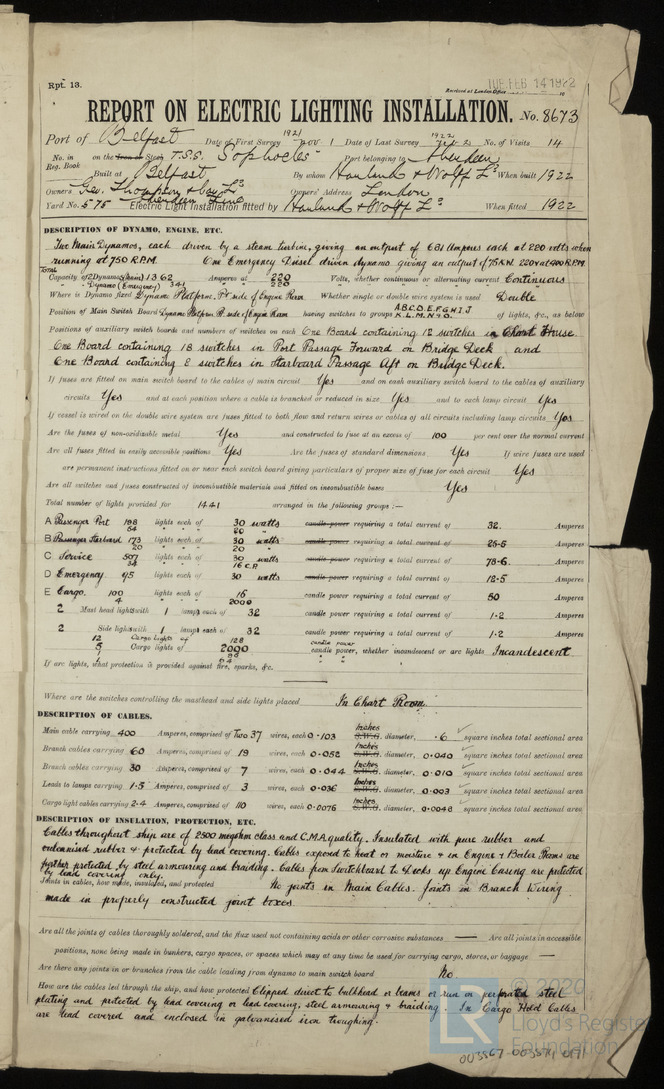 Rpt. 13.
TUE FEB 14 1922
Received at London Office
REPORT ON ELECTRIC LIGHTING INSTALLATION. No. 8673
Port of Belfast Date of First Survey 1921 Nov 1 Date of Last Survey 1922 Feb 2 No. of Visits 14
No. in Reg. Book on the Iron or Steel T.S.S. "Sophocles" Port belonging to Aberdeen
Built at Belfast By whom Harland & Wolff Ld When built 1922
Owners Geo. Thompson & Coy Ld Aberdeen Line Owners' Address London
Yard No. 575 Electric Light Installation fitted by Harland & Wolff Ld When fitted 1922
DESCRIPTION OF DYNAMO, ENGINE, ETC.
Two Main Dynamos, each driven by a steam turbine, giving an output of 681 Amperes each at 220 volts when
running at 750 R.P.M. One Emergency Diesel driven dynamo giving an output of 75 K.W. 220 v at 400 R.P.M.
Total Capacity of 2 Dynamos (Main) 1362 Amperes at 220 Volts, whether continuous or alternating current Continuous
" Dynamo (Emergency) 341 220
Where is Dynamo fixed Dynamo Platform. Pt side of Engine Room Whether single or double wire system is used Double
Position of Main Switch Board Dynamo Platform P. side of Engine Room having switches to groups A.B.C.D.E.F.G.H.I.J K.L.M.N & O. of lights, &c., as below
Positions of auxiliary switch boards and numbers of switches on each One Board containing 12 switches in Chart House
One Board containing 18 switches in Port Passage Forward on Bridge Deck and
One Board containing 8 switches in Starboard Passage Aft on Bridge Deck.
If fuses are fitted on main switch board to the cables of main circuit Yes and on each auxiliary switch board to the cables of auxiliary
circuits Yes and at each position where a cable is branched or reduced in size Yes and to each lamp circuit Yes
If vessel is wired on the double wire system are fuses fitted to both flow and return wires or cables of all circuits including lamp circuits Yes
Are the fuses of non-oxidizable metal Yes and constructed to fuse at an excess of 100 per cent over the normal current
Are all fuses fitted in easily accessible positions Yes Are the fuses of standard dimensions Yes If wire fuses are used
are permanent instructions fitted on or near each switch board giving particulars of proper size of fuse for each circuit Yes
Are all switches and fuses constructed of incombustible materials and fitted on incombustible bases Yes
Total number of lights provided for 1441 arranged in the following groups :—
A Passenger Port 198 lights each of 30 watts candle power requiring a total current of 32. Amperes
54 " " " 20
B Passenger Starboard 173 lights each of 30 watts candle power requiring a total current of 25.5 Amperes
20 " " " 20
C Service 507 lights each of 30 watts candle power requiring a total current of 78.6. Amperes
34 " " " 16 C.P.
D Emergency 95 lights each of 30 watts candle power requiring a total current of 12.5 Amperes
E Cargo. 100 lights each of 16 candle power requiring a total current of 50 Amperes
4 " " " 2000
2 Mast head lights with 1 lamps each of 32 candle power requiring a total current of 1.2 Amperes
2 Side lights with 1 lamps each of 32 candle power requiring a total current of 1.2 Amperes
12 Cargo lights of 128 candle power
5 Cargo lights of 2000 candle power, whether incandescent or arc lights Incandescent
If arc lights, what protection is provided against fire, sparks, &c.
Where are the switches controlling the masthead and side lights placed In Chart Room.
DESCRIPTION OF CABLES.
Main cable carrying 400 Amperes, comprised of Two 37 wires, each 0.103 S.W.G. Inches diameter, .6 square inches total sectional area
Branch cables carrying 60 Amperes, comprised of 19 wires, each 0.052 S.W.G. Inches diameter, 0.040 square inches total sectional area
Branch cables carrying 30 Amperes, comprised of 7 wires, each 0.044 S.W.G. Inches diameter, 0.010 square inches total sectional area
Leads to lamps carrying 1.5 Amperes, comprised of 3 wires, each 0.036 S.W.G. Inches diameter, 0.003 square inches total sectional area
Cargo light cables carrying 2.4 Amperes, comprised of 110 wires, each 0.0076 S.W.G. Inches diameter, 0.0048 square inches total sectional area
DESCRIPTION OF INSULATION, PROTECTION, ETC.
Cables throughout ship are of 2500 megohm class and C.M.A quality. Insulated with pure rubber and
vulcanised rubber & protected by lead covering. Cables exposed to heat or moisture & in Engine & Boiler Rooms are
further protected by steel armouring and braiding. Cables from Switchboard to Decks up Engine Casing are protected
by lead covering only.
Joints in cables, how made, insulated, and protected No joints in Main Cables. Joints in Branch Wiring
made in properly constructed joint boxes
Are all the joints of cables thoroughly soldered, and the flux used not containing acids or other corrosive substances — Are all joints in accessible
positions, none being made in bunkers, cargo spaces, or spaces which may at any time be used for carrying cargo, stores, or baggage —
Are there any joints in or branches from the cable leading from dynamo to main switch board No
How are the cables led through the ship, and how protected Clipped direct to bulkhead or beams or run on perforated steel
plating and protected by lead covering or lead covering, steel armouring & braiding. In Cargo Hold Cables
are lead covered and enclosed in galvanised iron troughing.
© 2020
LR
Lloyd's Register
Foundation